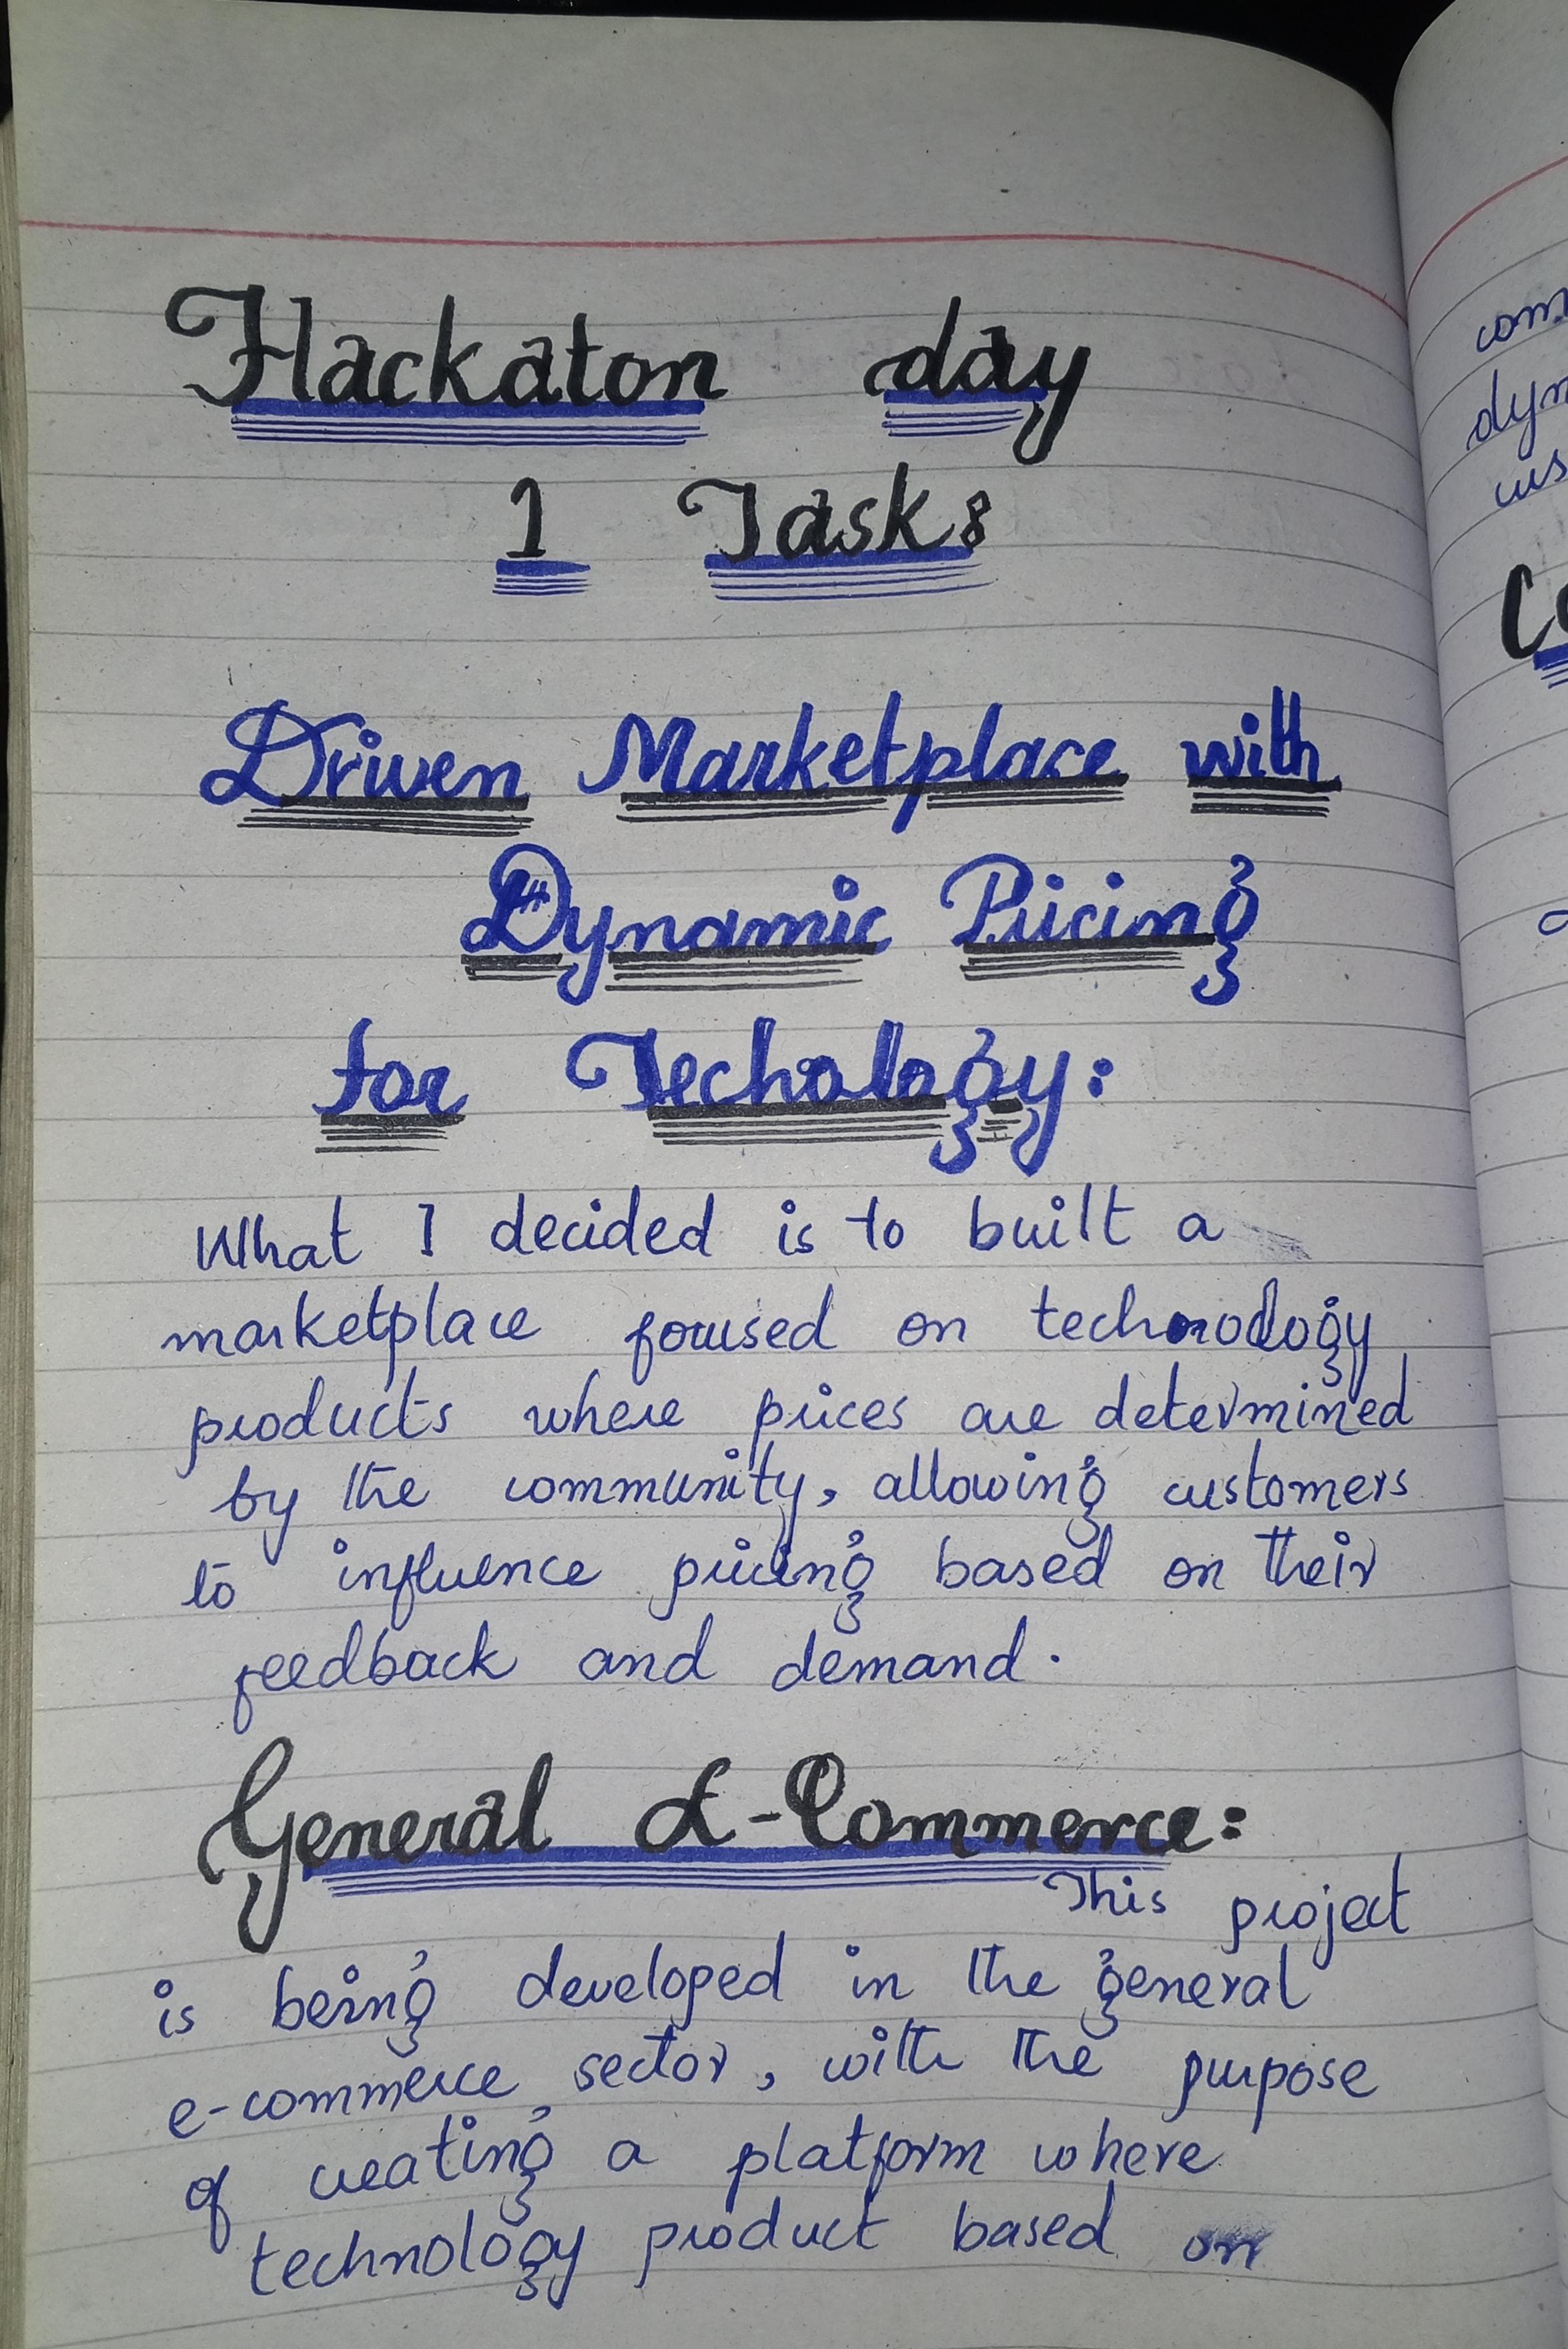 Hackaton day
1 Task:
Driven Marketplace with
Dynamic Pricing
for Techology:
What I decided is to built a
marketplace focused on technology
products where prices are determined
by the community, allowing customers
to influence pricing based on their
feedback and demand.
General E-Commerce:
This project
is being developed in the general
e-commerce sector, with the purpose
of creating a platform where
technology product based on
com
dyn
cus
Co